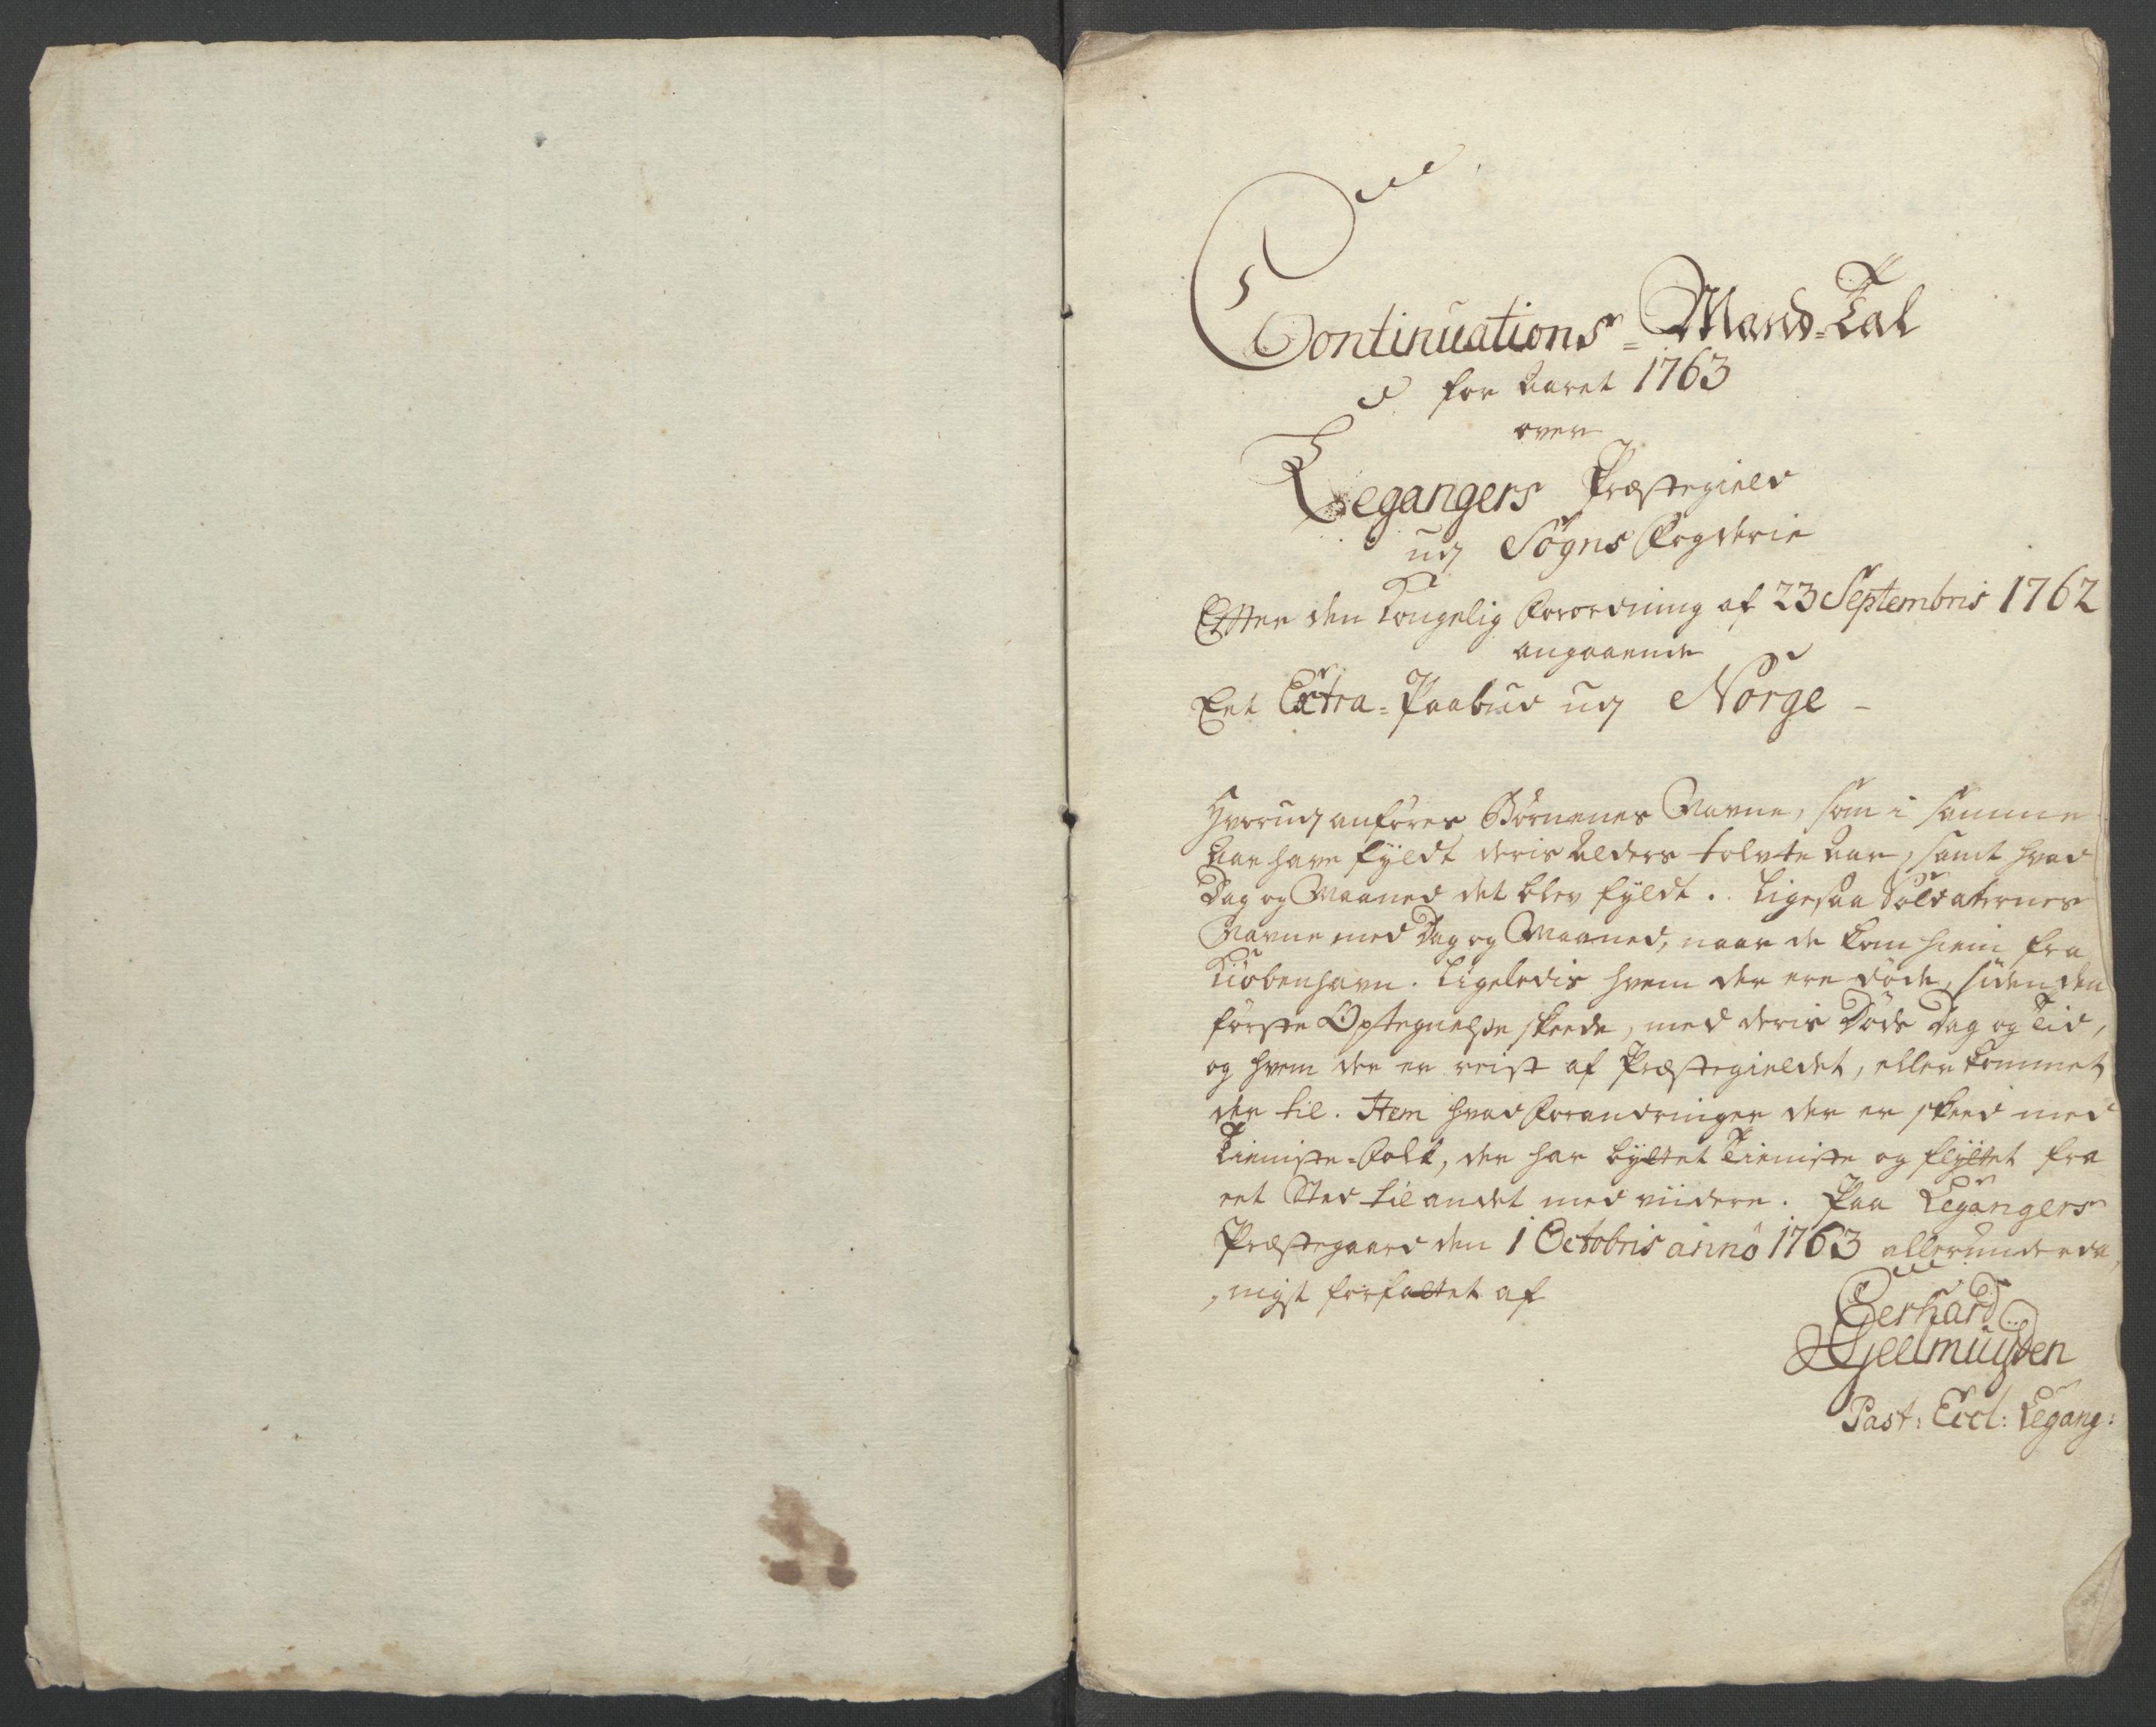 Continuations-Mand-Tal
for Aaret 1763
over
Legangers Præstegield
udj Sogns Fogderie
Efter den Kongelig Forordning af 23 Septembris 1762
angaaende
Eet Extra-Paabud udj Norge -
Hvorudj anføres Børnenes Navne, som i samme
Aar have fyldt deris Alders tolvte Aar, samt hvad
Dag og Maaned det blev fyldt. Ligesaa Soldaternes
Navne med Dag og Maaned, naar de kom hiem fra
Kiøbenhavn. Ligeledis hvem der ere døde, siden den
første Optegnelse skeede, med deris Døds Dag og Tid,
og hvem der er reist af Præstegieldet, eller kommet
der til. Item hvad Forandringer der er skeed med
Tieniste-Folk, der har byttet Tieniste og flyttet fra
eet Sted til andet med viidere. Paa Legangers
Præstegaard den 1 Octobris anno 1763 allerunderda,
,nigst forfattet af
Gerhard
Gjeelmuyden
Past: Eccl: Legang: